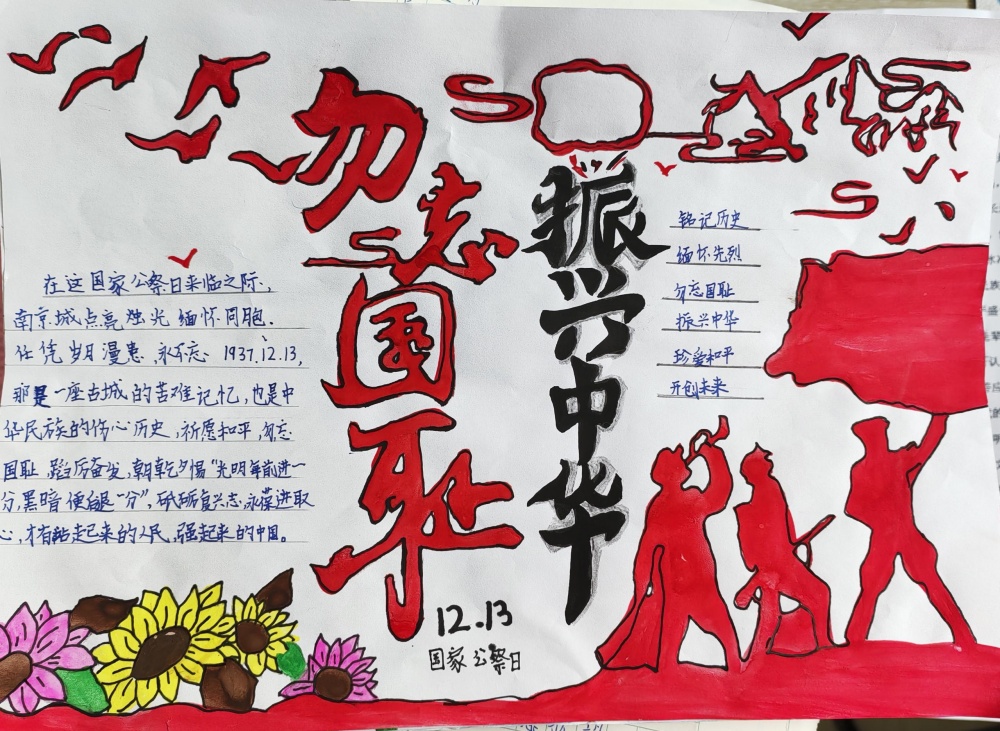 勿忘国耻
振兴中华
在这国家公祭日来临之际，
南京城点亮烛光缅怀同胞.
任凭岁月漫患,永不忘 1937,12.13,
那是一座古城的苦难记忆,也是中
华民族的伤心历史,祈愿和平,勿忘
国耻,蹈厉奋发,朝乾夕惕“光明每前进一
分,黑暗便后退一分”,砥砺复兴志,永葆进取
心,才有站起来的人民,强起来的中国。
铭记历史
缅怀先烈
勿忘国耻
振兴中华
珍爱和平
开创未来
12.13
国家公祭日